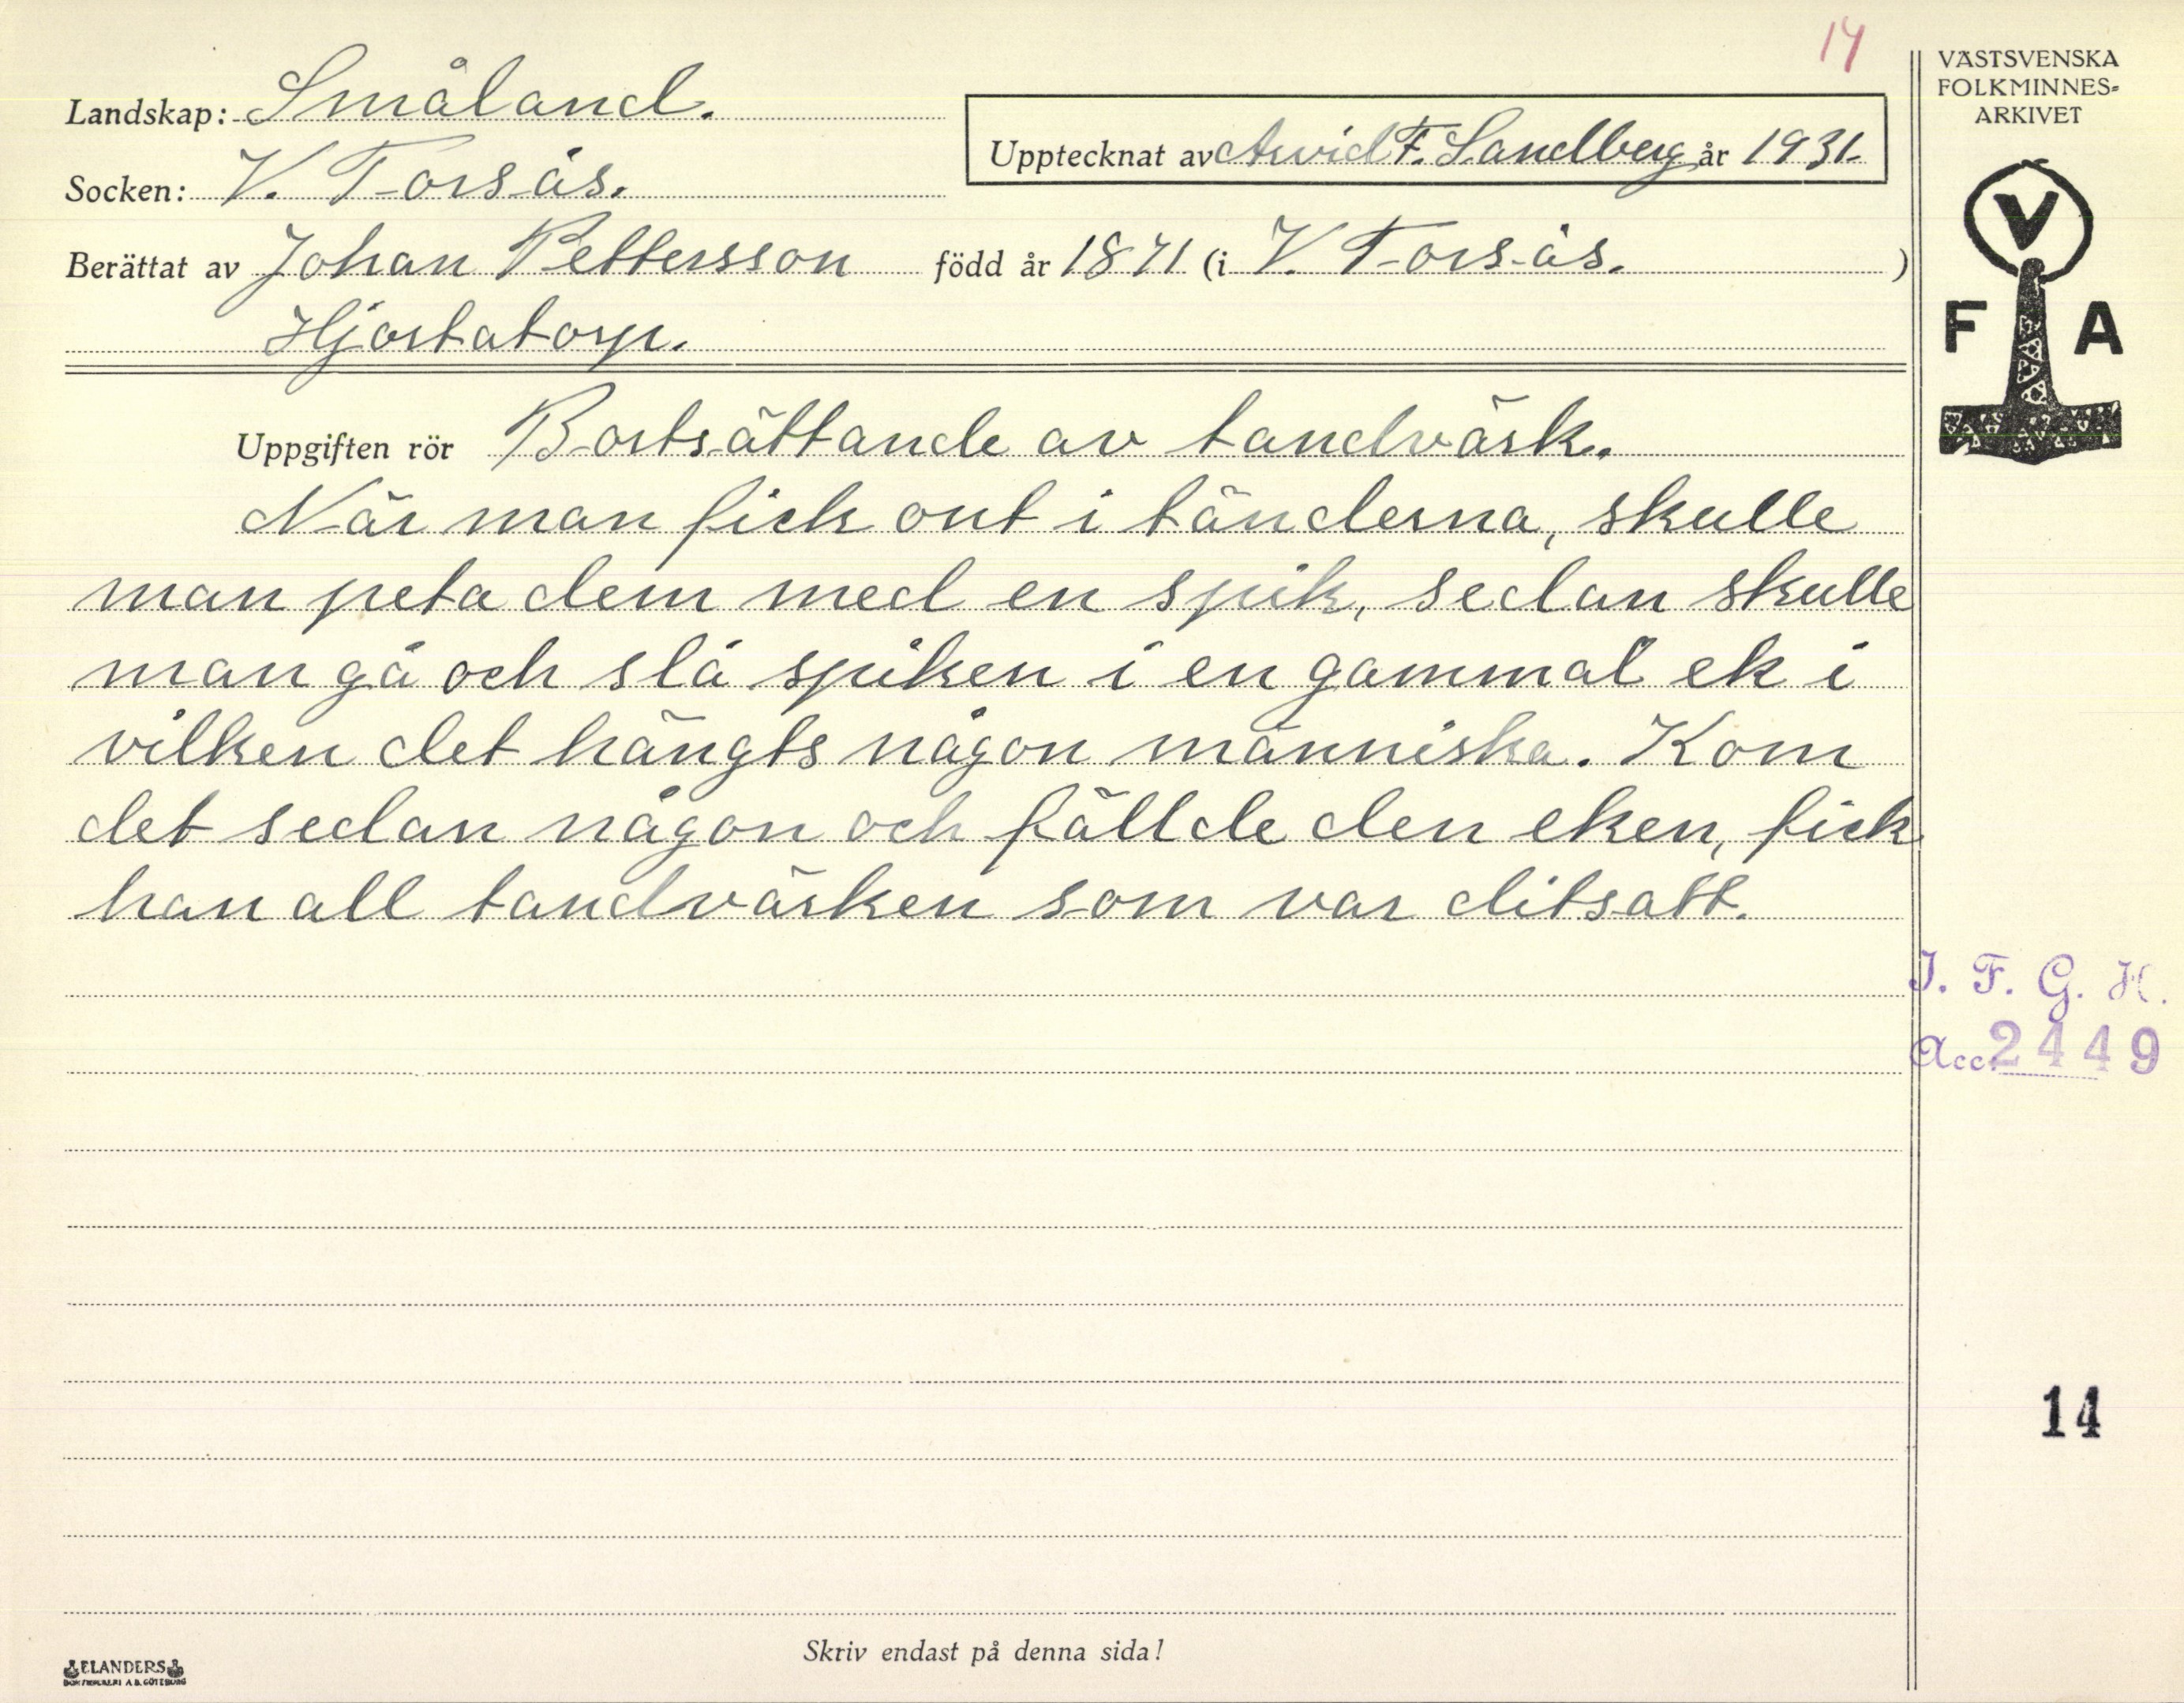 14
VÄSTSVENSKA
FOLKMINNES-
ARKIVET
Landskap: Småland.
Upptecknat av Arvid F. Sandberg år 1931.
Socken: V. Torsås.
Berättat av Johan Pettersson född år 1871 (i V. Torsås. )
Hjortatorp.
V
F A
Uppgiften rör Bortsättande av tandvärk.
När man fick ont i tänderna, skulle
man peta dem med en spik, sedan skulle
man gå och slå spiken i en gammal ek i
vilken det hängts någon människa. Kom
det sedan någon och fällde den eken, fick
han all tandvärken som var ditsatt.
I. F. G. H.
Acc. 2449
14
Skriv endast på denna sida!
ELANDERS
BOKTRYCKERI A.B. GÖTEBORG